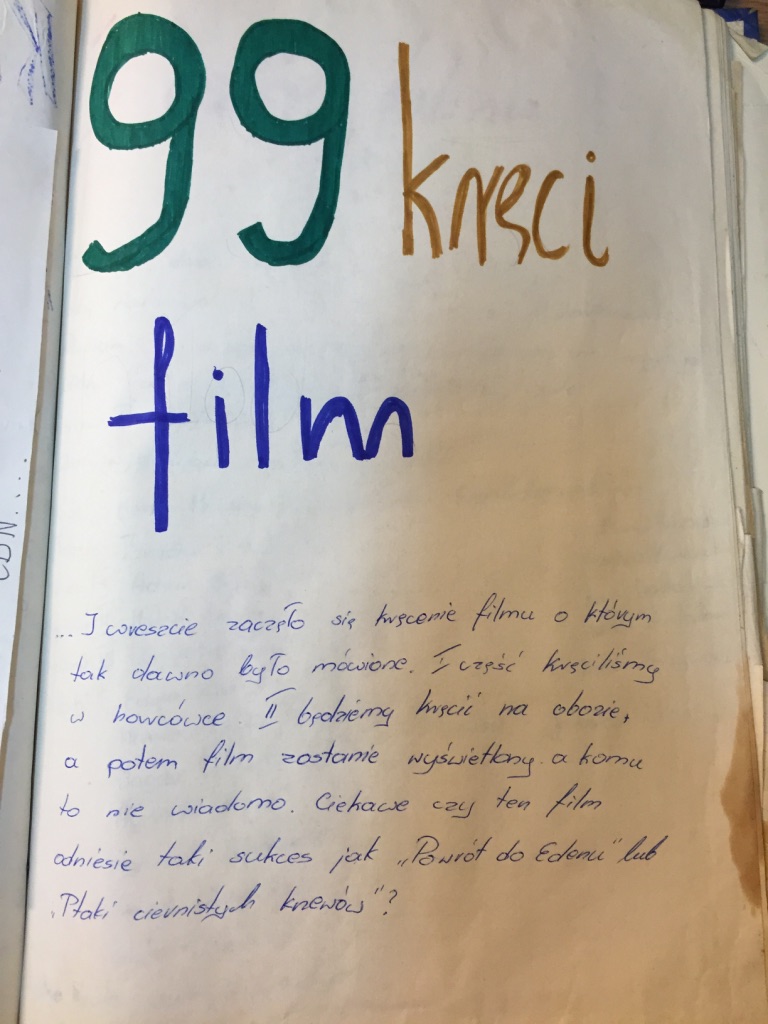 99 kręci
film
CDN...
... I wreszcie zaczęło się kręcenie filmu o którym
tak dawno było mówione. I część kręciliśmy
w harcówce. II będziemy kręcić na obozie,
a potem film zostanie wyświetlany a komu
to nie wiadomo. Ciekawe czy ten film
odniesie taki sukces jak „Powrót do Edenu" lub
„Ptaki ciernistych krzewów"?